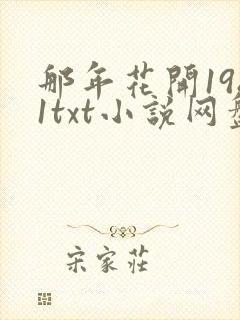 那年花開19
1txt小說网盤
宋家莊